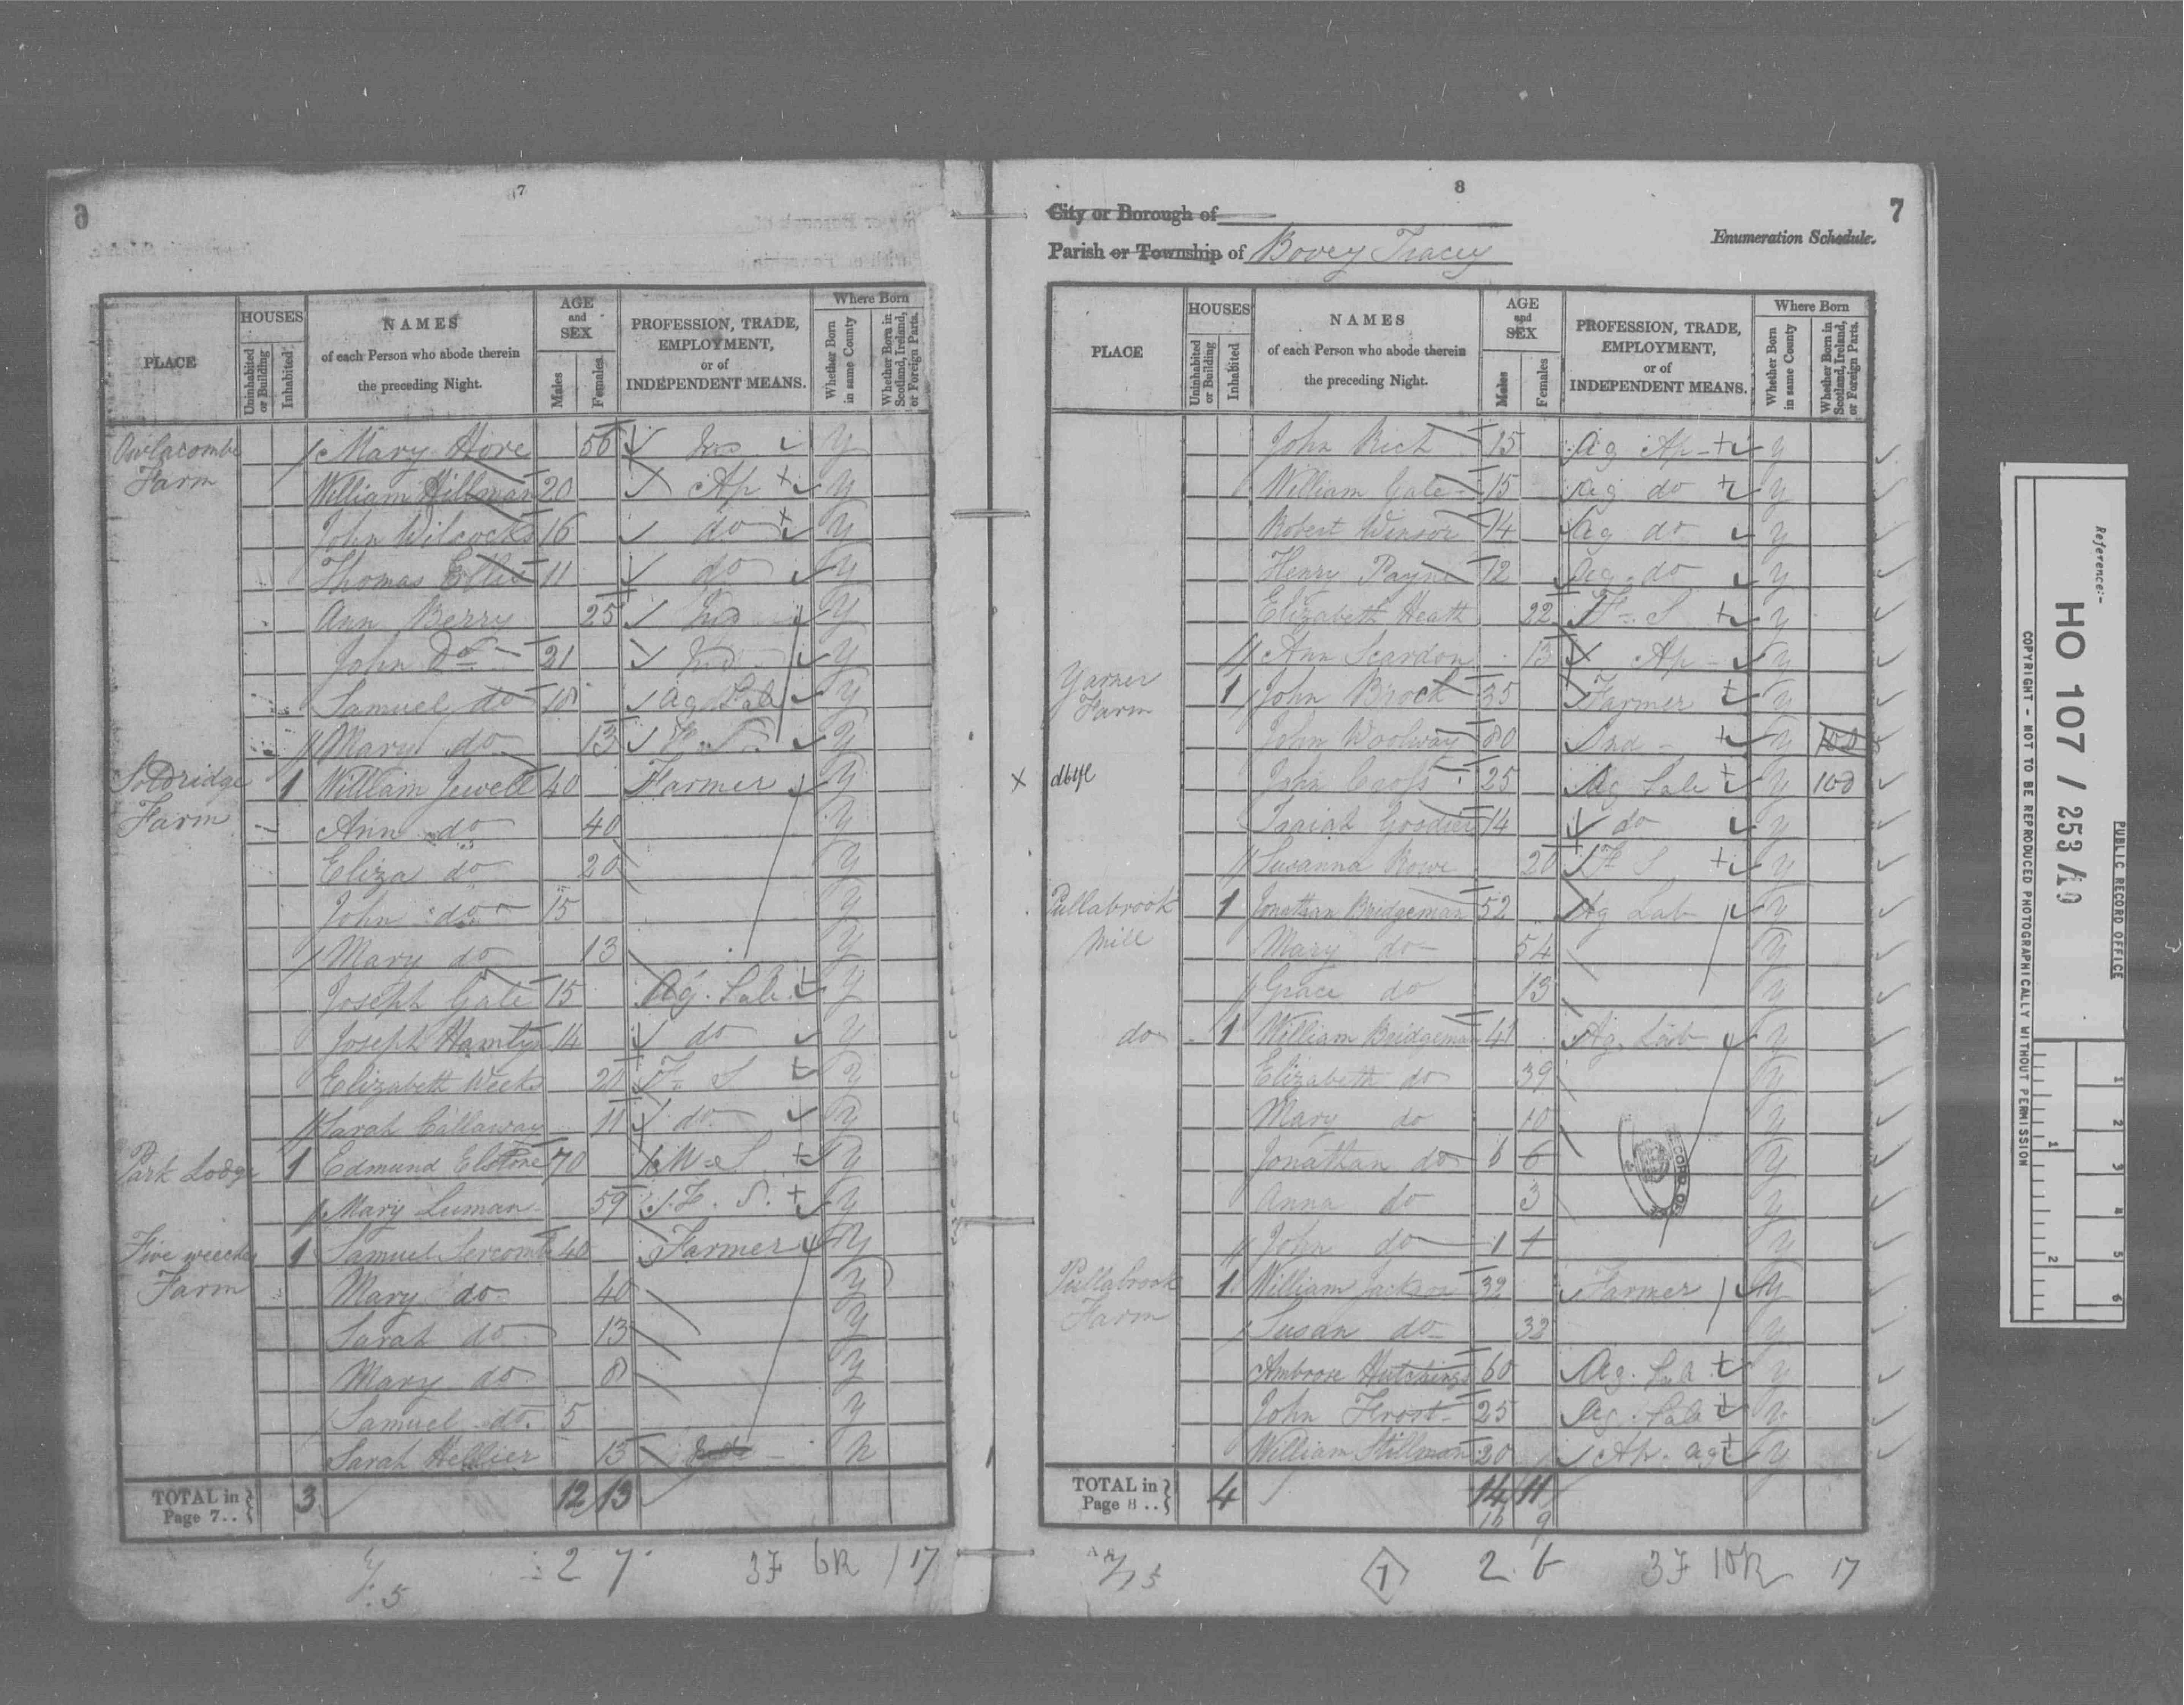 7
6
PLACE
HOUSES
Uninhabited or Building
Inhabited
NAMES
of each Person who abode therein
the preceding Night.
AGE
and
SEX
Males
Females
PROFESSION, TRADE,
EMPLOYMENT,
or of
INDEPENDENT MEANS.
Where Born
Whether Born in same County
Whether Born in Scotland, Ireland, or Foreign Parts.
Mary Hore 50 Ind Y
Farm William Hillman 20 Ap Y
John Wilcocks 16 do Y
Thomas Ellis 11 do Y
Ann Berry 25 Ind Y
John Do 21 Ind Y
Samuel do 18 Ag Lab Y
Mary do 13 F. S. Y
1 William Jewell 40 Farmer Y
Farm Ann do 40 Y
Eliza do 20 Y
John do 15 Y
Mary do 13 Y
Joseph Gale 15 Ag. Lab. Y
Joseph Hamlyn 14 do Y
Elizabeth Weeks 20 F. S Y
Sarah Callaway 11 do Y
Park Lodge 1 Edmund 70 M. S. Y
Mary Luman 59 F. S. Y
Five 1 Samuel Sercombe 40 Farmer Y
Farm Mary do 40 Y
Sarah do 13 Y
Mary do 8 Y
Samuel do. 5 Y
Sarah Hellier 13 N
TOTAL in Page 7.. 3 12 13
5 2 7 3F 6R 17
8
7
City or Borough of
Enumeration Schedule.
Parish or Township of Bovey Tracey
PLACE
HOUSES
Uninhabited or Building
Inhabited
NAMES
of each Person who abode therein
the preceding Night.
AGE
and
SEX
Males
Females
PROFESSION, TRADE,
EMPLOYMENT,
or of
INDEPENDENT MEANS.
Where Born
Whether Born in same County
Whether Born in Scotland, Ireland, or Foreign Parts.
John Rich 15 Ag Ap Y
William Gale 15 Ag do Y
Robert Winsor 14 Ag do Y
Henry Payne 12 Ag do Y
Elizabeth Heath 22 F. S Y
Ann Scardon 13 Ap Y
Yarner Farm 1 John Brock 35 Farmer Y
John Woolway 80 Ind Y
John Cross 25 Ag Lab Y
Isaiah 14 do Y
Susanna Rowe 20 F S Y
Pullabrook Mill 1 Jonathan Bridgeman 52 Ag Lab Y
Mary do 54 Y
Grace do 13 Y
do 1 William Bridgeman 41 Ag. Lab Y
Elizabeth do 39 Y
Mary do 10 Y
Jonathan do 6 6 Y
Anna do 3 Y
John do 1 1 Y
Pullabrook Farm 1 William Jackson 32 Farmer Y
Susan do 32 Y
Ambrose Hutchings 60 Ag. Lab Y
John Frost 25 Ag. Lab Y
William Hillman 20 Ap. ag Y
TOTAL in Page 8.. 4 14 11
9
1 2 6 3F 10R 17
Reference:-
HO 107 / 253/10
PUBLIC RECORD OFFICE
COPYRIGHT - NOT TO BE REPRODUCED PHOTOGRAPHICALLY WITHOUT PERMISSION
1 2 3 4 5 6
1 2